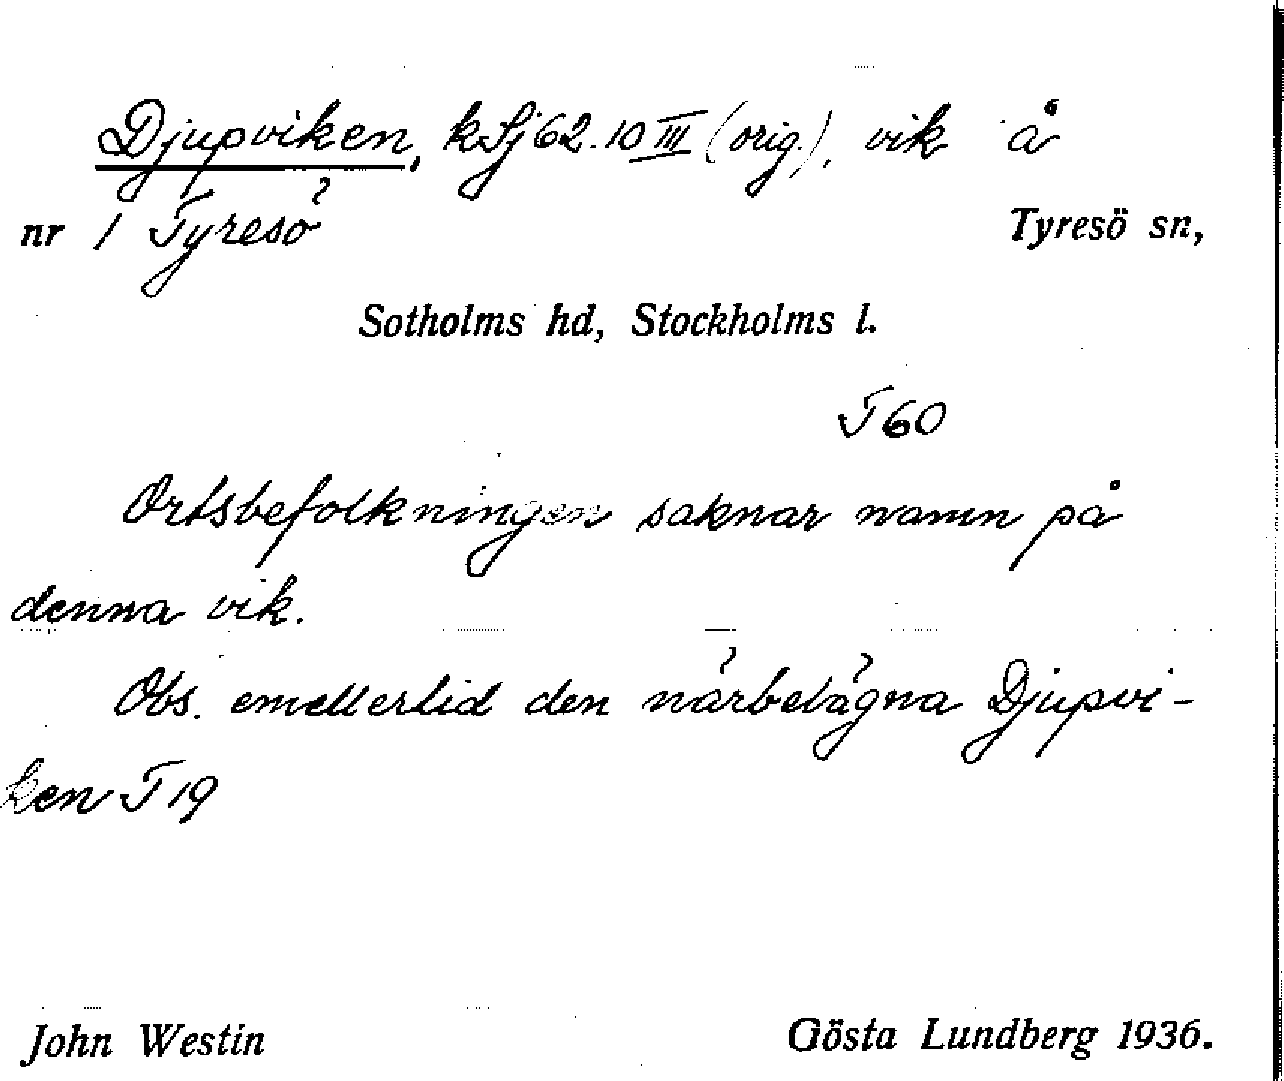 Djupviken, kSj 62.10 III (orig.), vik å
nr 1 Tyresö Tyresö sn,
Sotholms hd, Stockholms l.
T 60
Ortsbefolkningen saknar namn på
denna vik.
Obs. emellertid den närbelägna Djupvi-
ken T 19
John Westin Gösta Lundberg 1936.